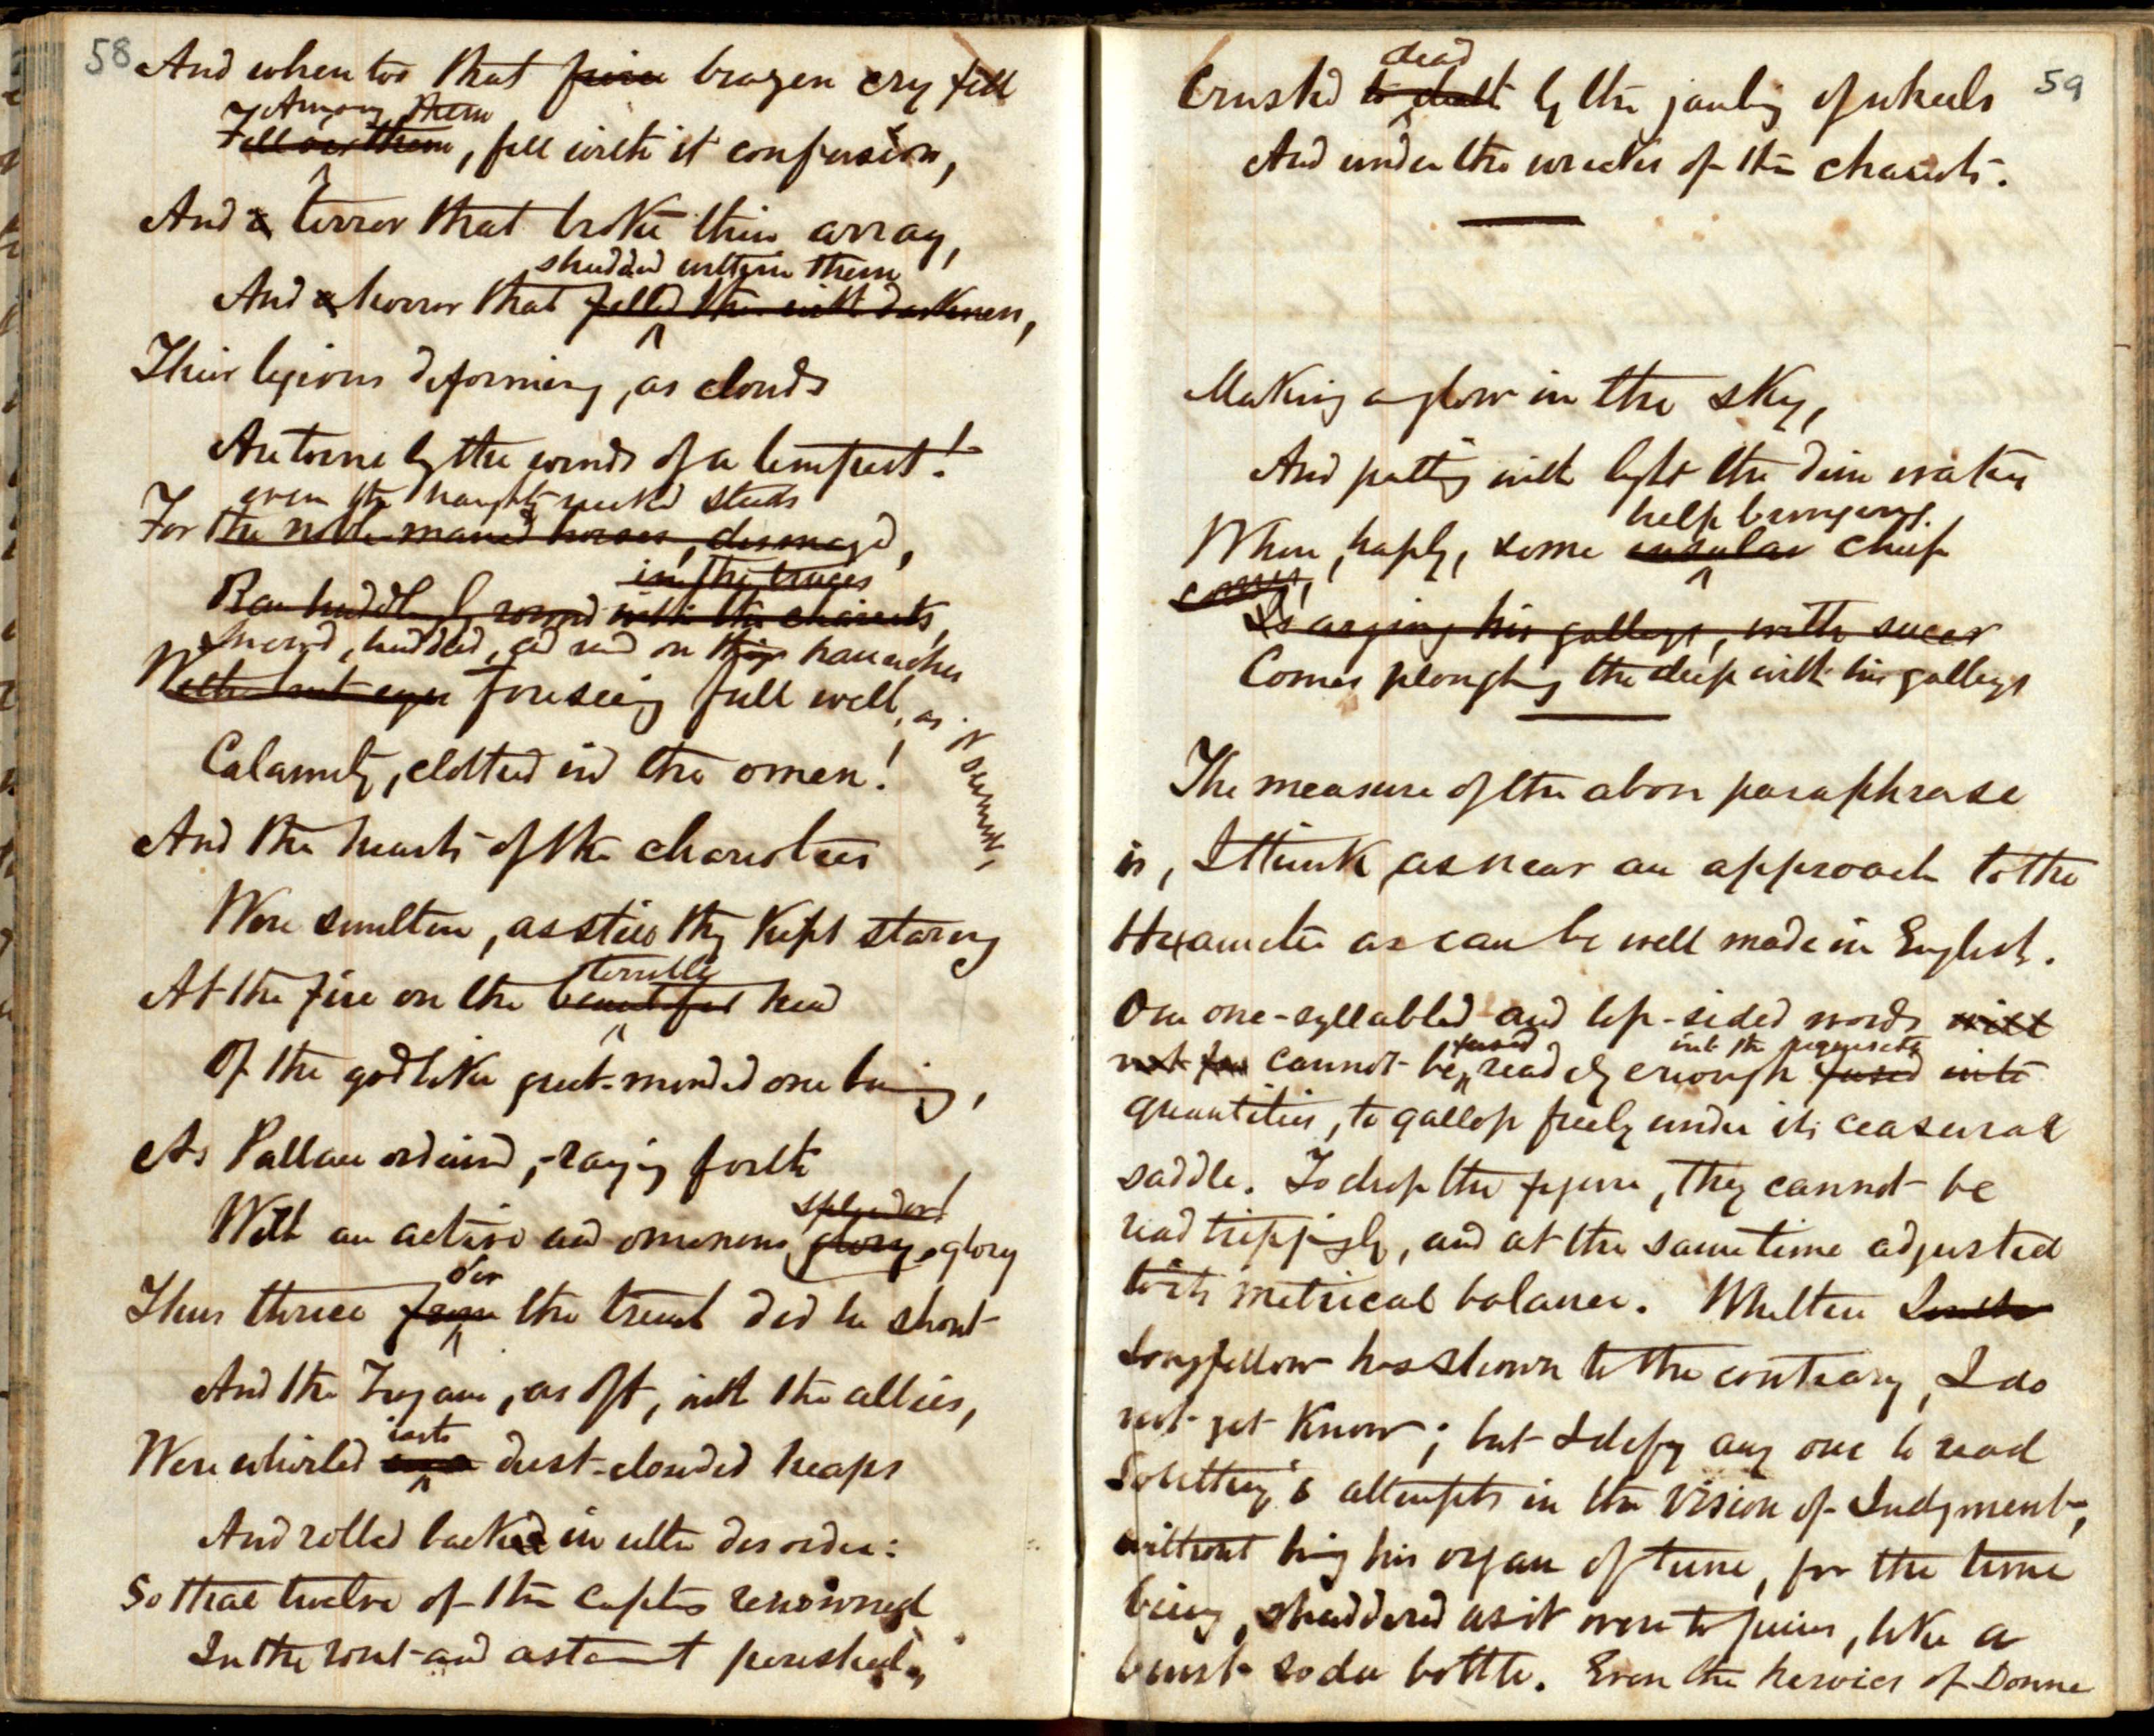 58
And when too that fierce brazen cry fell
Among them
Fell over them, fell with it confusion,
And a terror that broke their array,
shudded within them
And a horror that filled them with darkness,
Their legions deforming, as clouds
Are torne by the winds of a tempest!
even the haughty-necked steeds
For the noble-maned horses, dismayed,
in the traces
Ran huddling round with the chariots,
Snored, huddled, and rued on their haunches
With eyes foreseeing full well, as it seemed,
Calamity, clotted in the omen!
And the hearts of the charioteers
Were smitten, as still they kept staring
At the fire on the beautiful head
terrible
Of the godlike great-minded one burning,
As Pallas ordained, raying forth
splendor!
With an active and ominous glory, glory
o'er
Thus thrice from the trench did he shout
And the Trojans, as oft, with the allies,
into
Were whirled dust-clouded heaps
And rolled backed in utter disorder:
So that twelve of the captains renowned
In the rout and astament perished,
59
dead
Crushed to death by the jambing of wheels
And under the wrecks of the chariots.
Making a glow in the sky,
And patting with light the dim waters
help bringing
When, haply, some insular chief
comes,
Is urging his galleys, with succor
Comes ploughing the deep with his galleys
The measure of the above paraphrase
is, I think, as near an approach to the
Hexameter as can be well made in English.
Our one-syllabled and lop-sided words will
fused into the requisite
not for cannot be readily enough fused into
quantities, to gallop freely under its ceasural
saddle. To drop the figure, they cannot be
read trippingly, and at the same time adjusted
to its metrical balance. Whether
Longfellow has shown to the contrary, I do
not yet know; but I defy any one to read
Southey's attempts in the Vision of Judgment,
without his organ of tune, for the time
being, shuddered as it were to pieces, like a
burst soda bottle. Even the heroics of Donne